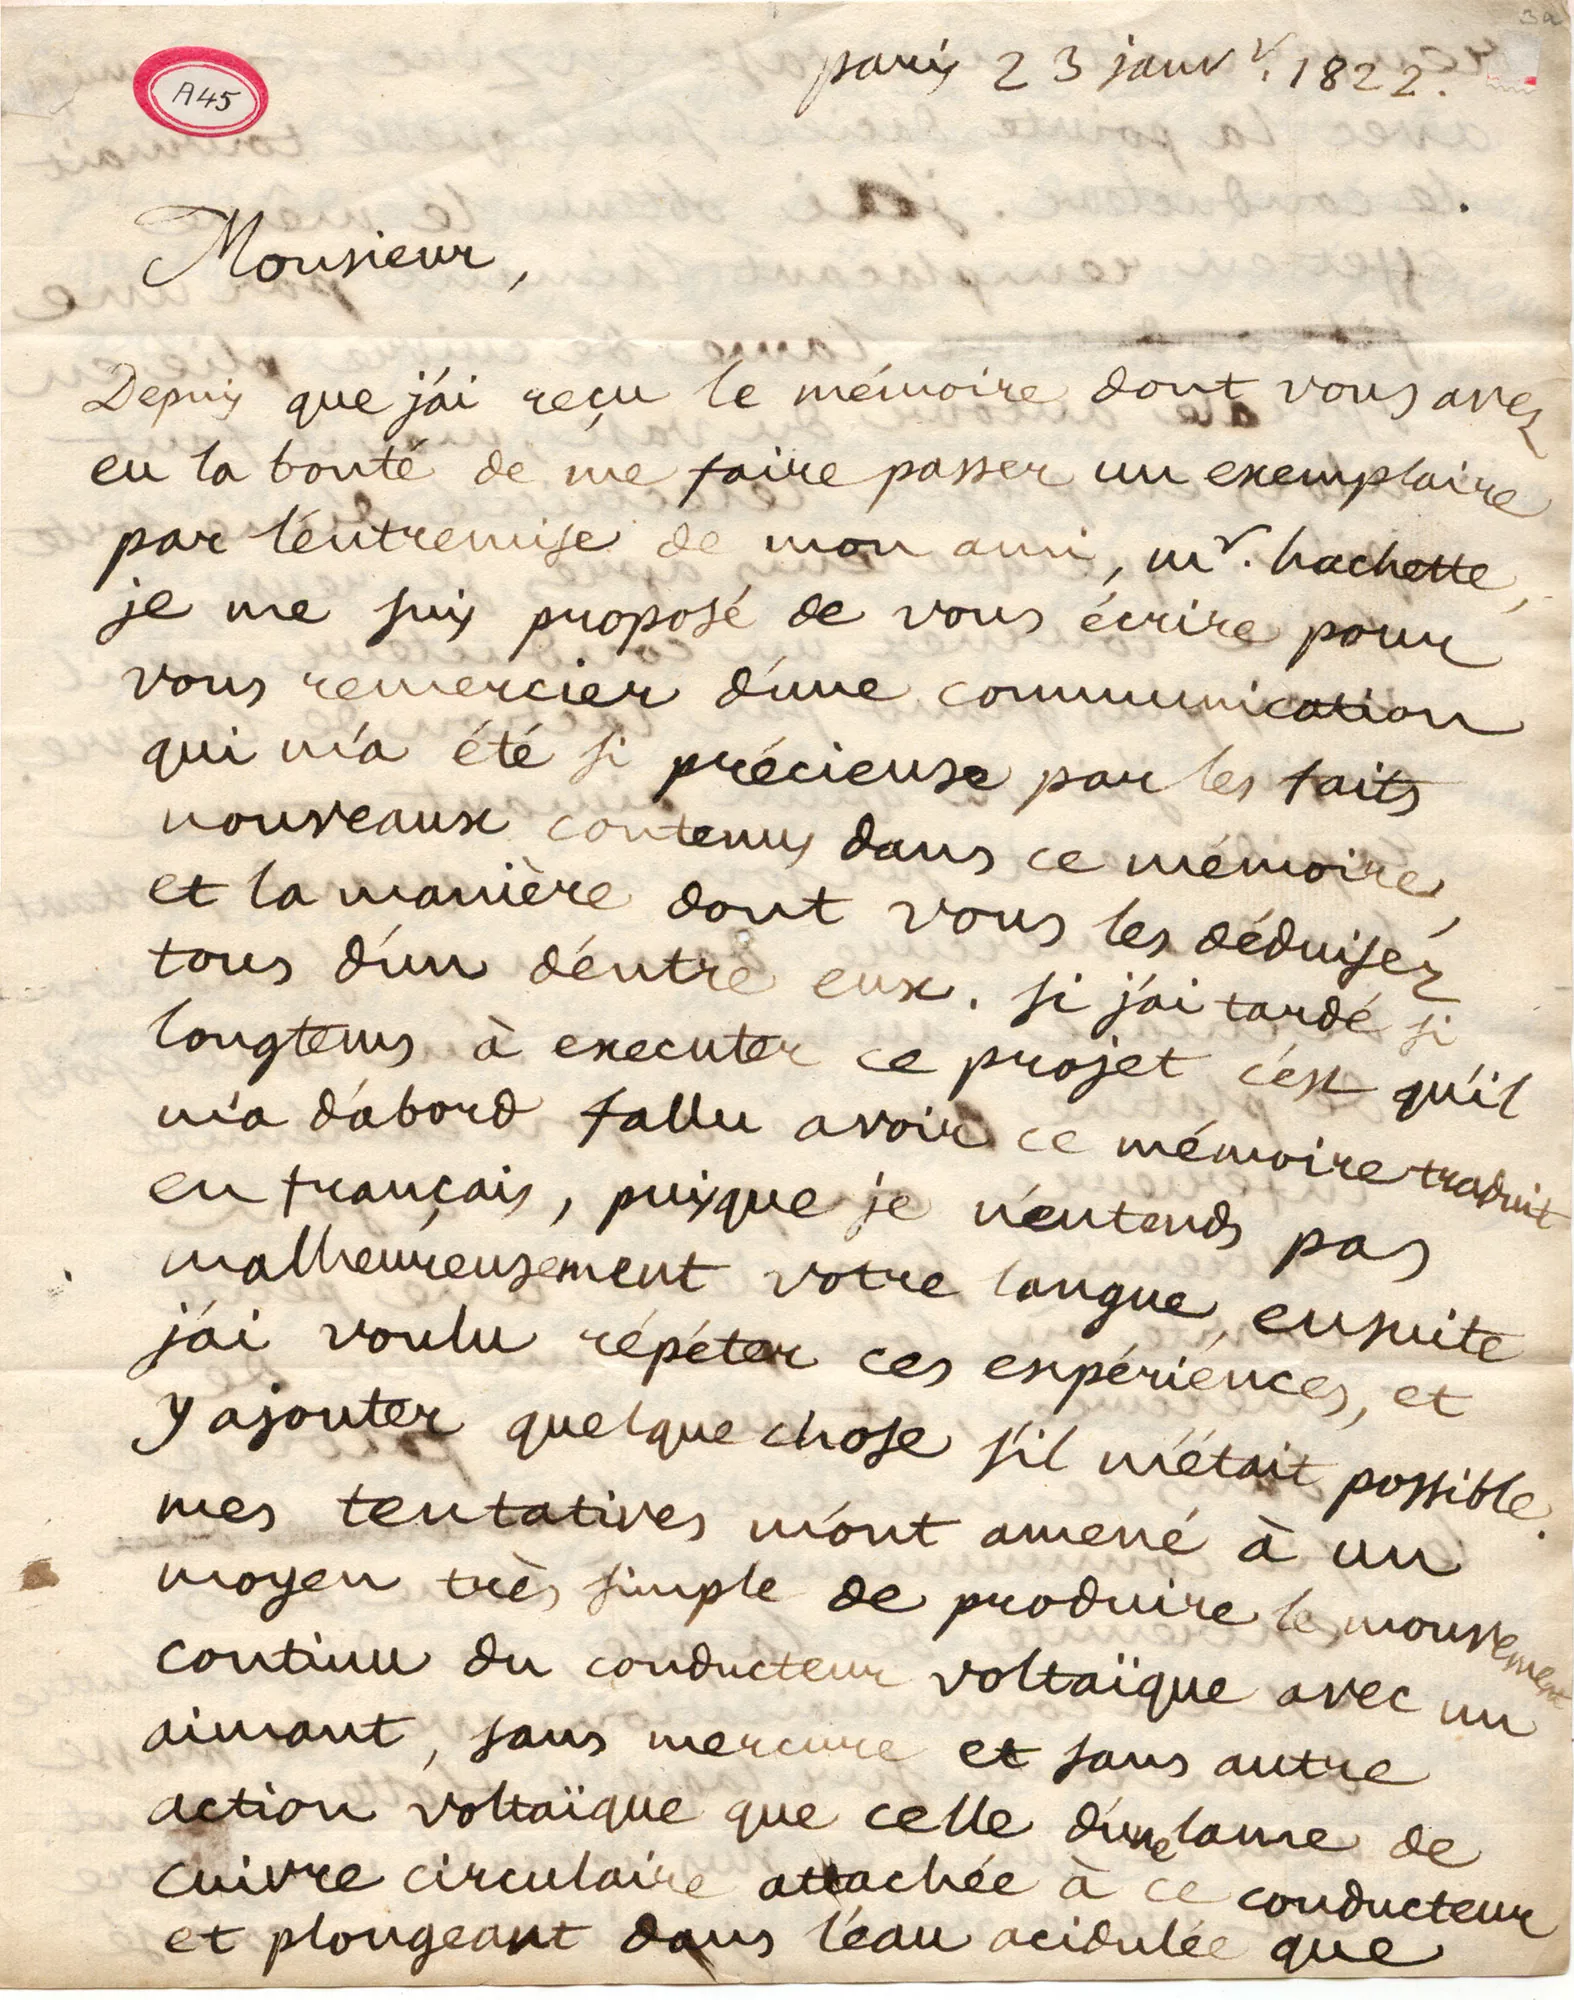 3a
A45
paris 23 janvr. 1822.
Monsieur,
Depuis que j'ai reçu le mémoire dont vous avez
eu la bonté de me faire passer un exemplaire
par l'entremise de mon ami, mr. hachette,
je me suis proposé de vous écrire pour
vous remercier d'une communication
qui m'a été si précieuse par les faits
nouveaux contenus dans ce mémoire,
et la manière dont vous les déduisez
tous d'un d'entre eux. si j'ai tardé si
longtems à executer ce projet c'est qu'il
m'a d'abord fallu avoir ce mémoire traduit
en français, puisque je n'entends pas
malheureusement votre langue, ensuite
j'ai voulu répéter ces expériences, et
y ajouter quelque chose s'il m'était possible.
mes tentatives m'ont amené à un
moyen très simple de produire le mouvement
continu du conducteur voltaïque avec un
aimant, sans mercure et sans autre
action voltaïque que celle d'une lame de
cuivre circulaire attachée à ce conducteur
et plongeant dans l'eau acidulée que